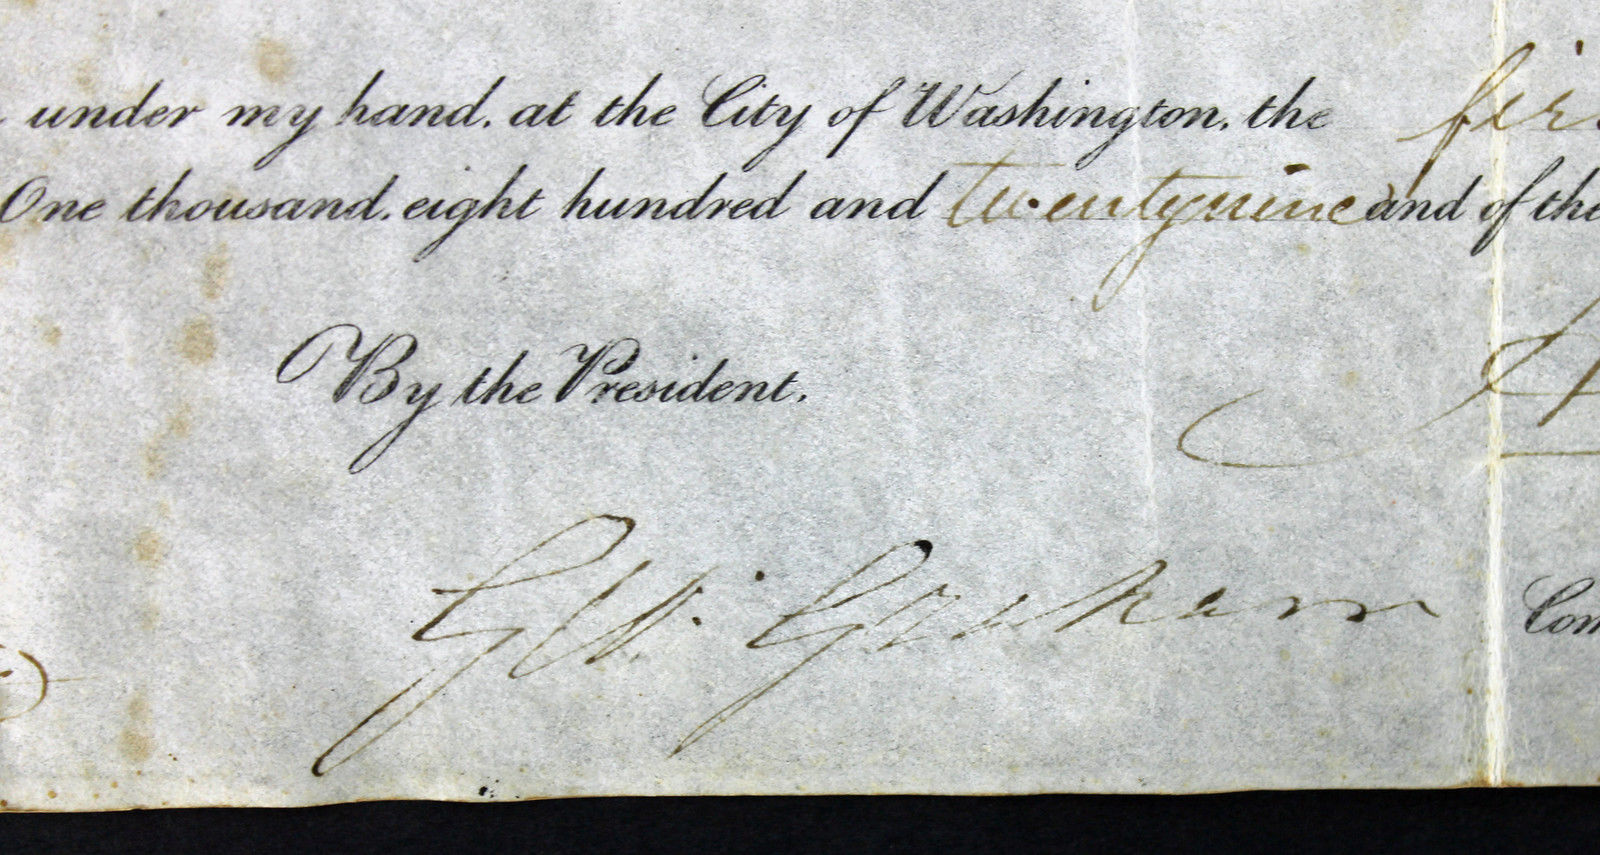 under my hand, at the City of Washington, the fir
One thousand, eight hundred and twenty nine and of the
By the President.
G. W. Graham
Com